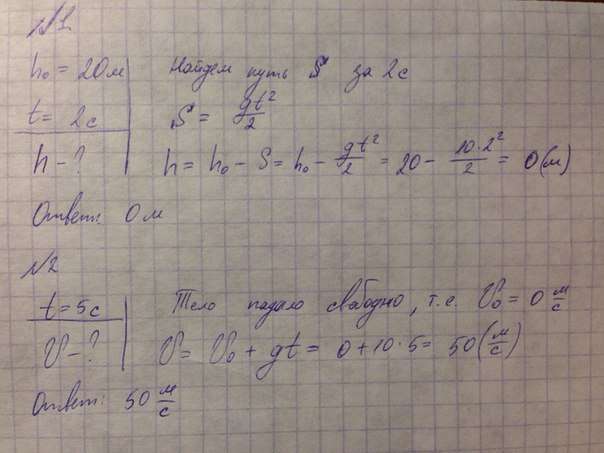 №1
h₀ = 20м Найдем путь S за 2с
t = 2с S = gt²/2
h - ? h = h₀ - S = h₀ - gt²/2 = 20 - 10·2²/2 = 0(м)
Ответ: 0м
№2
t = 5с Тело падало свободно, т.е. V₀ = 0 м/с
V - ? V = V₀ + gt = 0 + 10·5 = 50(м/с)
Ответ: 50 м/с